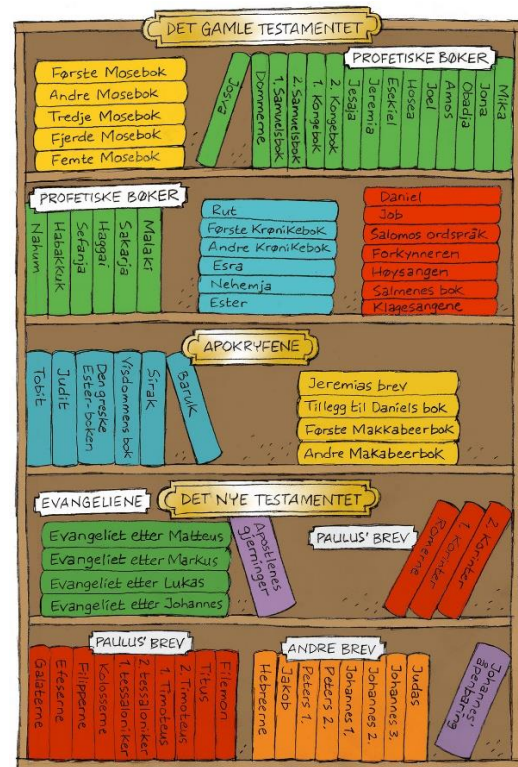 DET GAMLE TESTAMENTET
Første Mosebok
Andre Mosebok
Tredje Mosebok
Fjerde Mosebok
Femte Mosebok
PROFETISKE BØKER
Josva
Dommerne
1. Samuelsbok
2. Samuelsbok
1. Kongebok
2. Kongebok
Jesaja
Jeremia
Esekiel
Hosea
Joel
Amos
Obadja
Jona
Mika
PROFETISKE BØKER
Nahum
Habakkuk
Sefanja
Haggai
Sakarja
Malaki
Rut
Første Krønikebok
Andre Krønikebok
Esra
Nehemja
Ester
Daniel
Job
Salomos ordspråk
Forkynneren
Høysangen
Salmenes bok
Klagesangene
APOKRYFENE
Tobit
Judit
Den greske
Ester-boken
Visdommens bok
Sirak
Baruk
Jeremias brev
Tillegg til Daniels bok
Første Makkabeerbok
Andre Makabeerbok
EVANGELIENE
DET NYE TESTAMENTET
Evangeliet etter Matteus
Evangeliet etter Markus
Evangeliet etter Lukas
Evangeliet etter Johannes
Apostlenes
gjerninger
PAULUS' BREV
Romerne
1. Korinter
2. Korinter
PAULUS' BREV
Galaterne
Efeserne
Filipperne
Kolosserne
1. tessaloniker
2. tessaloniker
1. Timoteus
2. Timoteus
Titus
Filemon
ANDRE BREV
Hebreerne
Jakob
Peters 1.
Peters 2.
Johannes 1.
Johannes 2.
Johannes 3.
Judas
Johannes'
åpenbaring